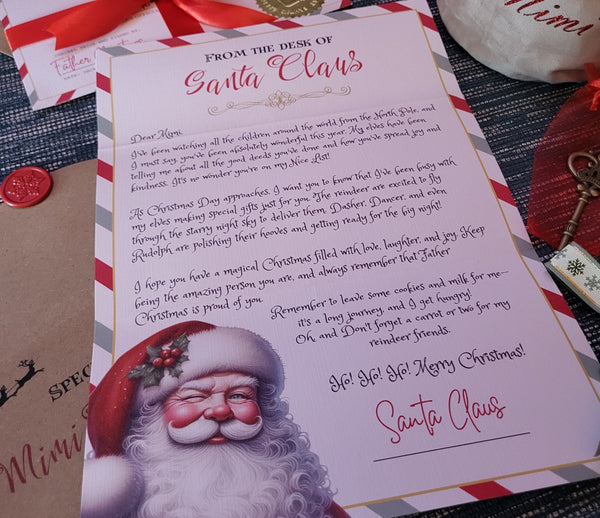 Father
Mimi
FROM THE DESK OF
Santa Claus
Dear Mimi,
I've been watching all the children around the world from the North Pole, and
I must say, you've been absolutely wonderful this year. My elves have been
telling me about all the good deeds you've done and how you've spread joy and
kindness. It's no wonder you're on my Nice List!
As Christmas Day approaches, I want you to know that I've been busy with
my elves making special gifts just for you. The reindeer are excited to fly
through the starry night sky to deliver them. Dasher, Dancer, and even
Rudolph are polishing their hooves and getting ready for the big night!
I hope you have a magical Christmas filled with love, laughter, and joy. Keep
being the amazing person you are, and always remember that Father
Christmas is proud of you.
Remember to leave some cookies and milk for me—
it's a long journey, and I get hungry!
Oh, and Don't forget a carrot or two for my
reindeer friends.
Ho! Ho! Ho! Merry Christmas!
Santa Claus
SPEC
Mimi